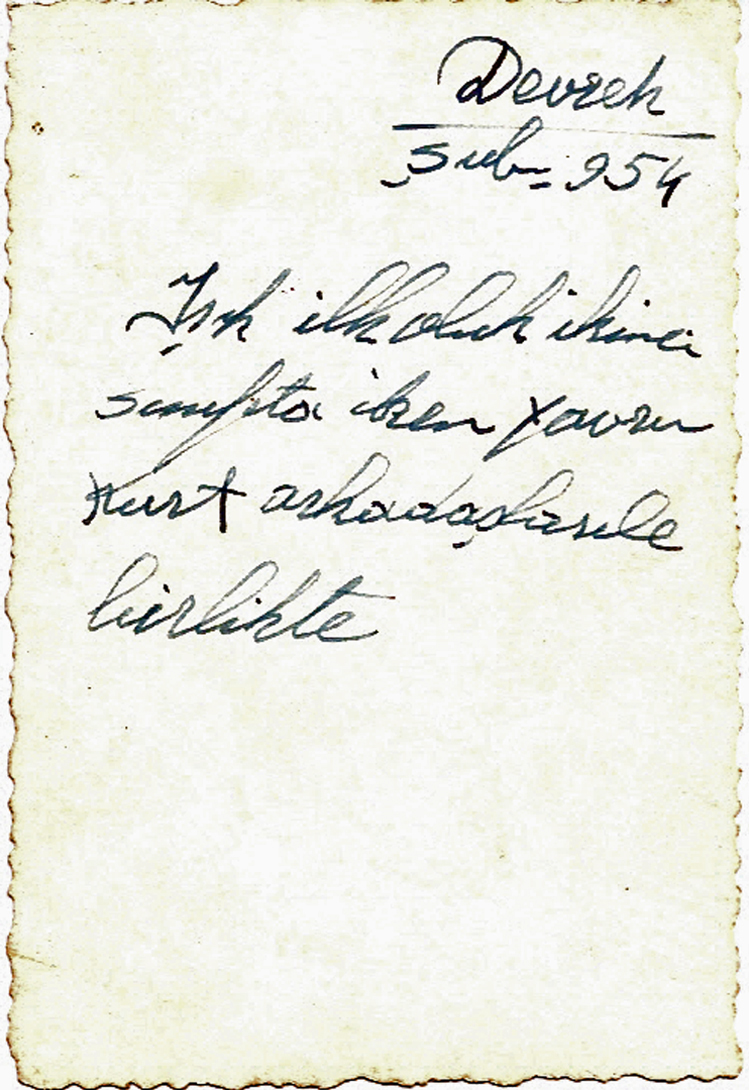 Devrek
Şub= 954
Işık ilkokulu ikinci
sınıfta iken Yavru
Kurt arkadaşlarile
birlikte